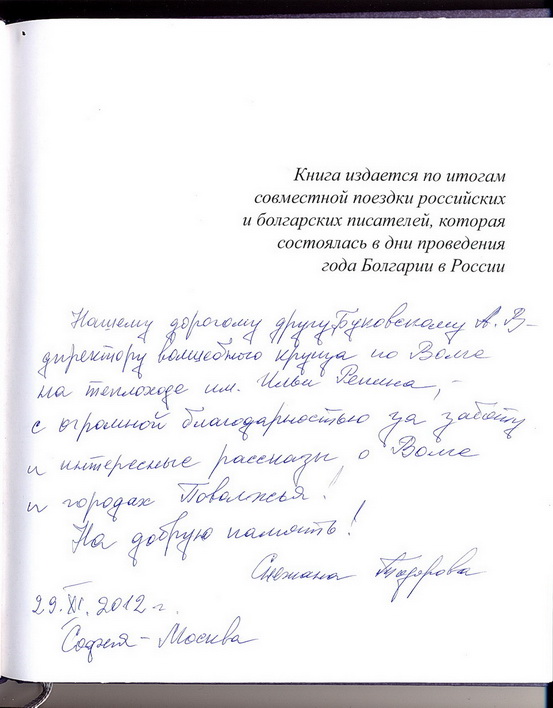 Книга издается по итогам
совместной поездки российских
и болгарских писателей, которая
состоялась в дни проведения
года Болгарии в России
Нашему дорогому другу Буковскому А. В. –
директору волшебного круиза по Волге
на теплоходе им. Ильи Репина, –
с огромной благодарностью за заботу
и интересные рассказы о Волге
и городах Поволжья!
На добрую память!
Снежана Тодорова
29.XI.2012 г.
София – Москва